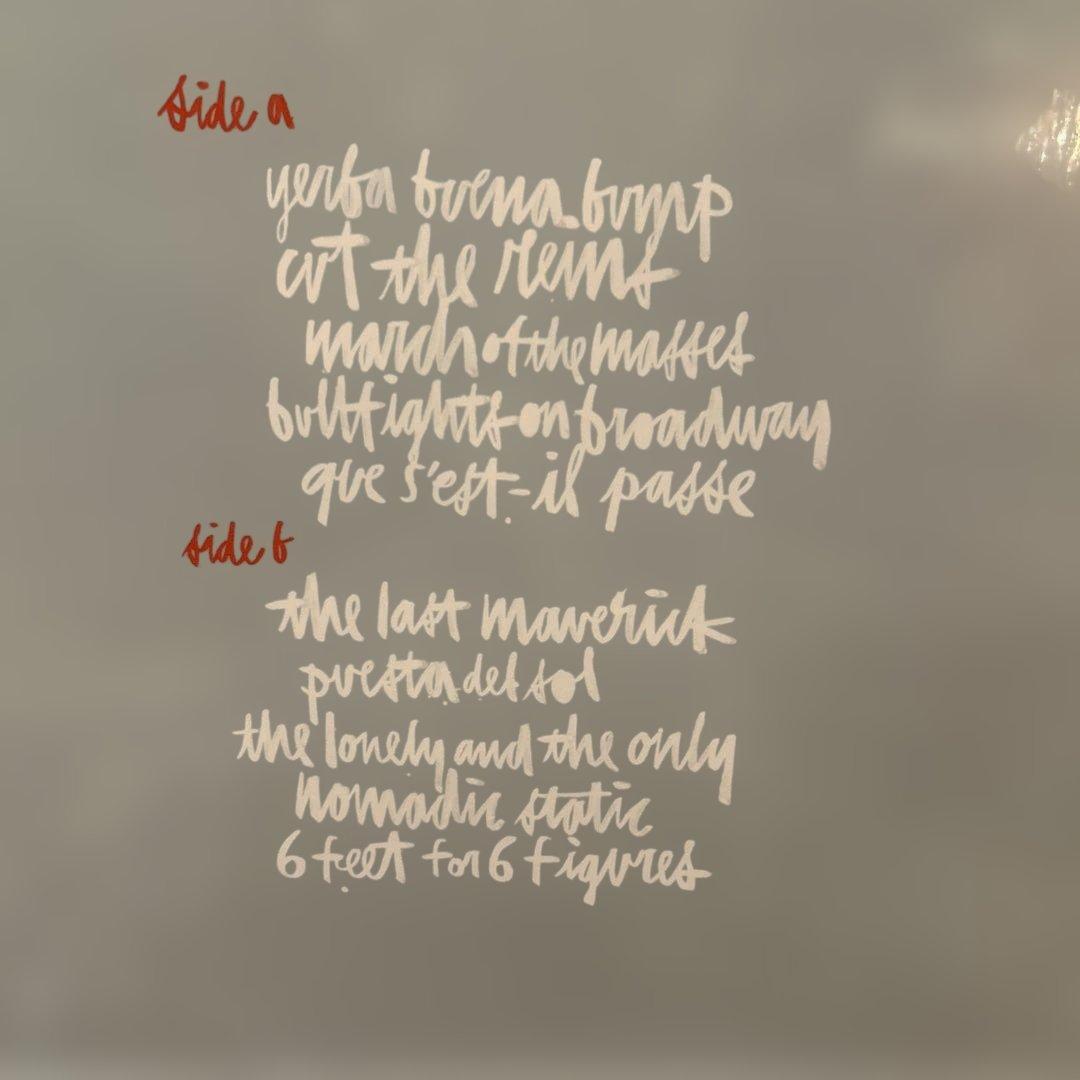 side a
yerba buena bump
cut the reins
march of the masses
bullfights on broadway
que s'est-il passe
side b
the last maverick
puesta del sol
the lonely and the only
nomadic static
6 feet for 6 figures